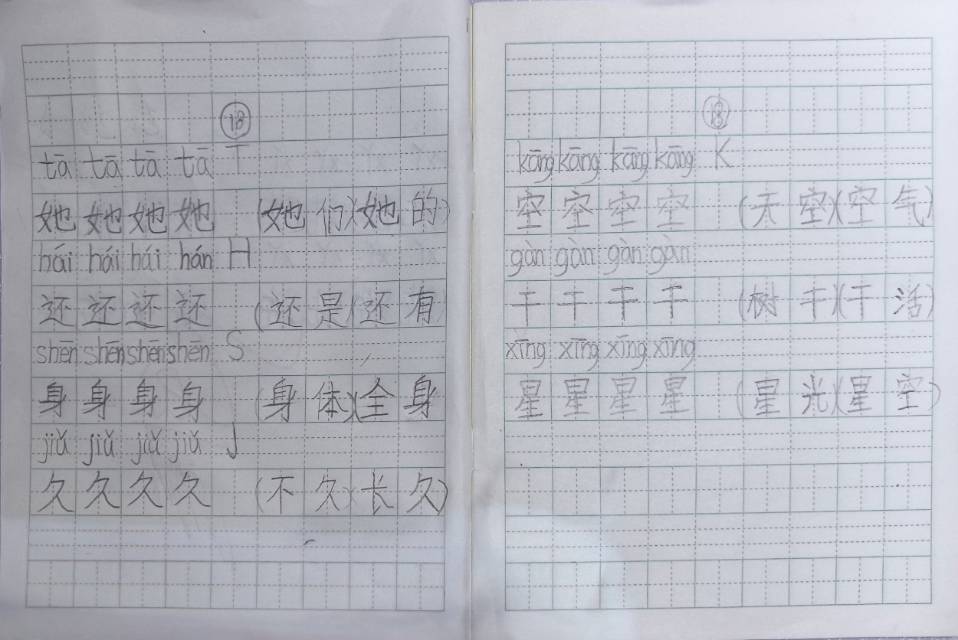 18
tā tā tā tā T
她 她 她 她 (她们)(她的)
hái hái hái hán H
还 还 还 还 (还是)(还有)
shēn shēn shēn shēn S
身 身 身 身 (身体)(全身)
jiǔ jiǔ jiǔ jiǔ J
久 久 久 久 (不久)(长久)
18
kāng kāng kāng kāng K
空 空 空 空 (天空)(空气)
gàn gàn gàn gàn
干 干 干 干 (树干)(干活)
xīng xīng xīng xīng
星 星 星 星 (星光)(星空)